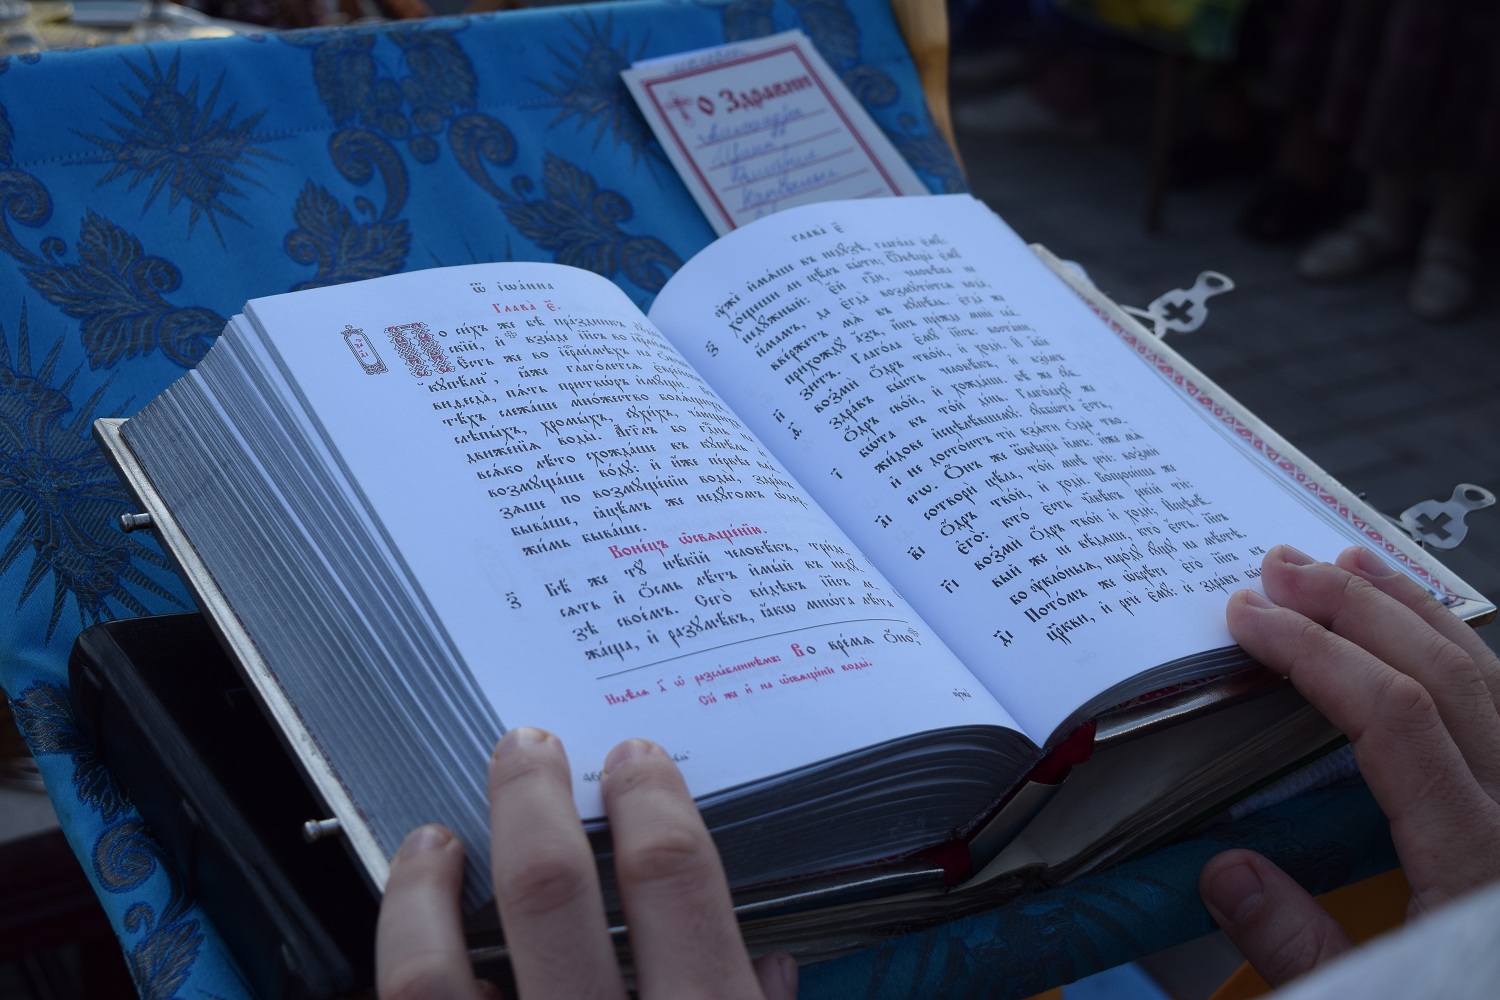 О Здравии
Ѿ іѡа́нна
Глава̀ є҃.
По си́хъ же бѣ̀ пра́здникъ
і҆и҃съ во і҆ерⷭ҇ли́мъ
Є҆́сть же во і҆ерⷭ҇ли́мѣхъ на
кꙋпѣ́ль, ꙗ҆́же глаго́летса є҆вре́йски
виѳесда̀, па́ть притвѡ́ръ и҆мꙋ́щи.
тѣ́хъ слежа́ше мно́жество болѧ́щихъ
слѣпы́хъ, хромы́хъ, сꙋхи́хъ, ча́ющихъ
движе́нїѧ воды̀. А҆́гг҃лъ бо гдⷭ҇ень
всѧ́ко лѣ́то схожда́ше въ кꙋпѣ́ль и҆
возмꙋща́ше во́дꙋ: и҆ и҆́же пе́рвѣе вла́-
зѧше по возмꙋще́нїи воды̀, здра́въ
быва́ше, ꙗ҆цѣ́мъ же недꙋ́гомъ ѡ҆дер-
жи́мь быва́ше.
Коне́цъ ѡ҆свѧще́нїю.
Бѣ́ же тꙋ̀ нѣ́кїй человѣ́къ, три́де-
сѧть и҆ ѻ҆́смь лѣ́тъ и҆мы́й въ недꙋ́-
зѣ свое́мъ. Сего̀ ви́дѣвъ і҆и҃съ ле-
жа́ща, и҆ разꙋмѣ́въ, ꙗ҆́кѡ мнѡ́га лѣ́та
Недѣ́лѧ д҃ ѡ҆ разсла́бленнѣмъ: Во вре́мѧ ѻ҆́но,
Сїѐ же и҆ на ѡ҆свѧще́нїи воды̀.
Глава̀ є҃
ᲂу҆жѐ и҆мѧ́ше въ недꙋ́зѣ, глаго́ла є҆мꙋ̀:
хо́щеши ли цѣ́лъ бы́ти; Ѿвѣща̀ є҆мꙋ̀
недꙋ́жный: є҆́й гдⷭ҇и, человѣ́ка не
и҆́мамъ, да є҆гда̀ возмꙋти́тсѧ вода̀,
вве́ржетъ мѧ̀ въ кꙋпѣ́ль. є҆гда́ же
прихождꙋ̀ а҆́зъ, и҆́нъ пре́жде менє̀ сла́-
зитъ. Глаго́ла є҆мꙋ̀ і҆и҃съ: воста́ни,
возмѝ ѻ҆́дръ тво́й, и҆ ходѝ. И҆ а҆́бїе
здра́въ бы́сть человѣ́къ, и҆ взе́мъ
ѻ҆́дръ сво́й, и҆ хожда́ше. бѣ́ же сꙋб-
бѡ́та въ то́й де́нь. Глаго́лахꙋ же
жи́дове и҆сцѣлѣ́вшемꙋ: сꙋббѡ́та є҆́сть,
и҆ не досто́итъ тѝ взѧ́ти ѻ҆дра̀ твое-
гѡ̀. Ѻ҆́нъ же ѿвѣща̀ и҆̀мъ: и҆́же мѧ̀
сотворѝ цѣ́ла, то́й мнѣ̀ речѐ: возмѝ
ѻ҆́дръ тво́й, и҆ ходѝ. Вопроси́ша же
є҆го̀: кто̀ є҆́сть человѣ́къ рекі́й тѝ:
возмѝ ѻ҆́дръ тво́й и҆ ходѝ; И҆сцѣлѣ́-
вый же не вѣ́даше, кто̀ є҆́сть. і҆и҃съ
бо ᲂу҆клони́сѧ, наро́дꙋ сꙋ́щꙋ на мѣ́стѣ.
Пото́мъ же ѡ҆брѣ́те є҆го̀ і҆и҃съ въ
цр҃кви, и҆ речѐ є҆мꙋ̀: сѐ здра́въ